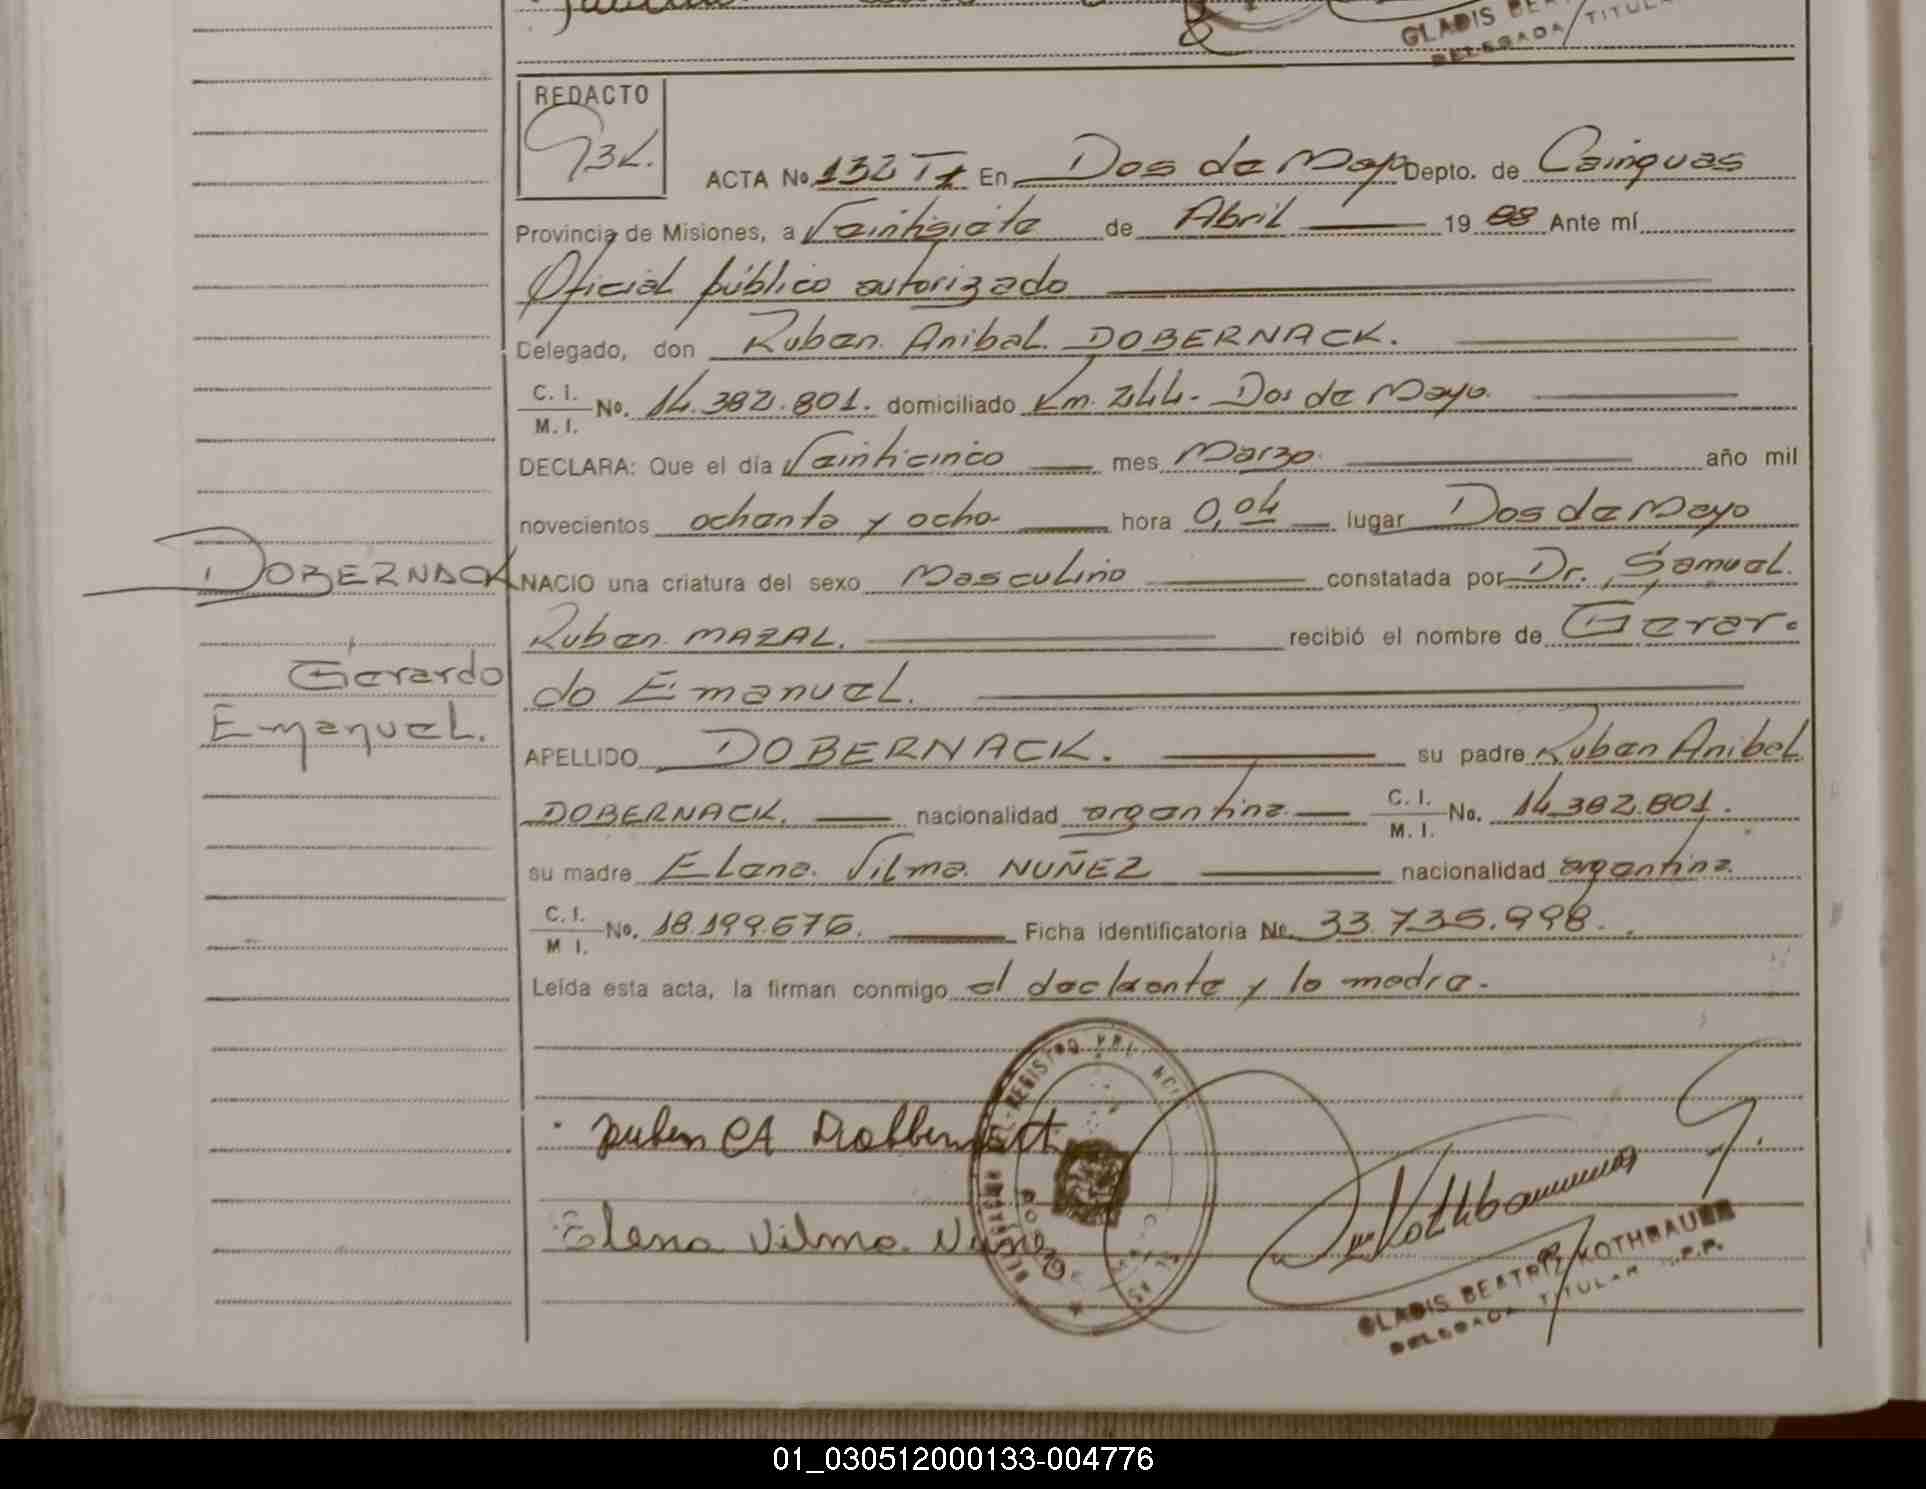 GLADIS BEA
DELEGADA TITULA
REDACTO
ACTA No. 132 T1 En Dos de Mayo Depto. de Cainguas
Provincia de Misiones, a Veintisiete de Abril 19 88 Ante mí
Oficial público autorizado
Delegado, don Ruben Anibal DOBERNACK.
C. I.
M. I. No. 14.382.801. domiciliado Km. 244 - Dos de Mayo.
DECLARA: Que el día Veinticinco mes Marzo. año mil
novecientos ochenta y ocho hora 0,04 lugar Dos de Mayo
DOBERNACK NACIO una criatura del sexo Masculino constatada por Dr. Samuel
Ruben MAZAL. recibió el nombre de Gerar-
Gerardo
do Emanuel.
Emanuel.
APELLIDO DOBERNACK. su padre Ruben Anibal
DOBERNACK. nacionalidad argentina C. I.
M. I. No. 14.382.801.
su madre Elena Vilma NUÑEZ nacionalidad argentina
C. I.
M I. No. 18.199.676. Ficha identificatoria No. 33.735.998.
Leída esta acta, la firman conmigo el declarante y la madre.
Elena Vilma Nuñez
Kothbauer
GLADIS BEATRIZ KOTHBAUER
DELEGADA TITULAR R.P.P.
01_030512000133-004776